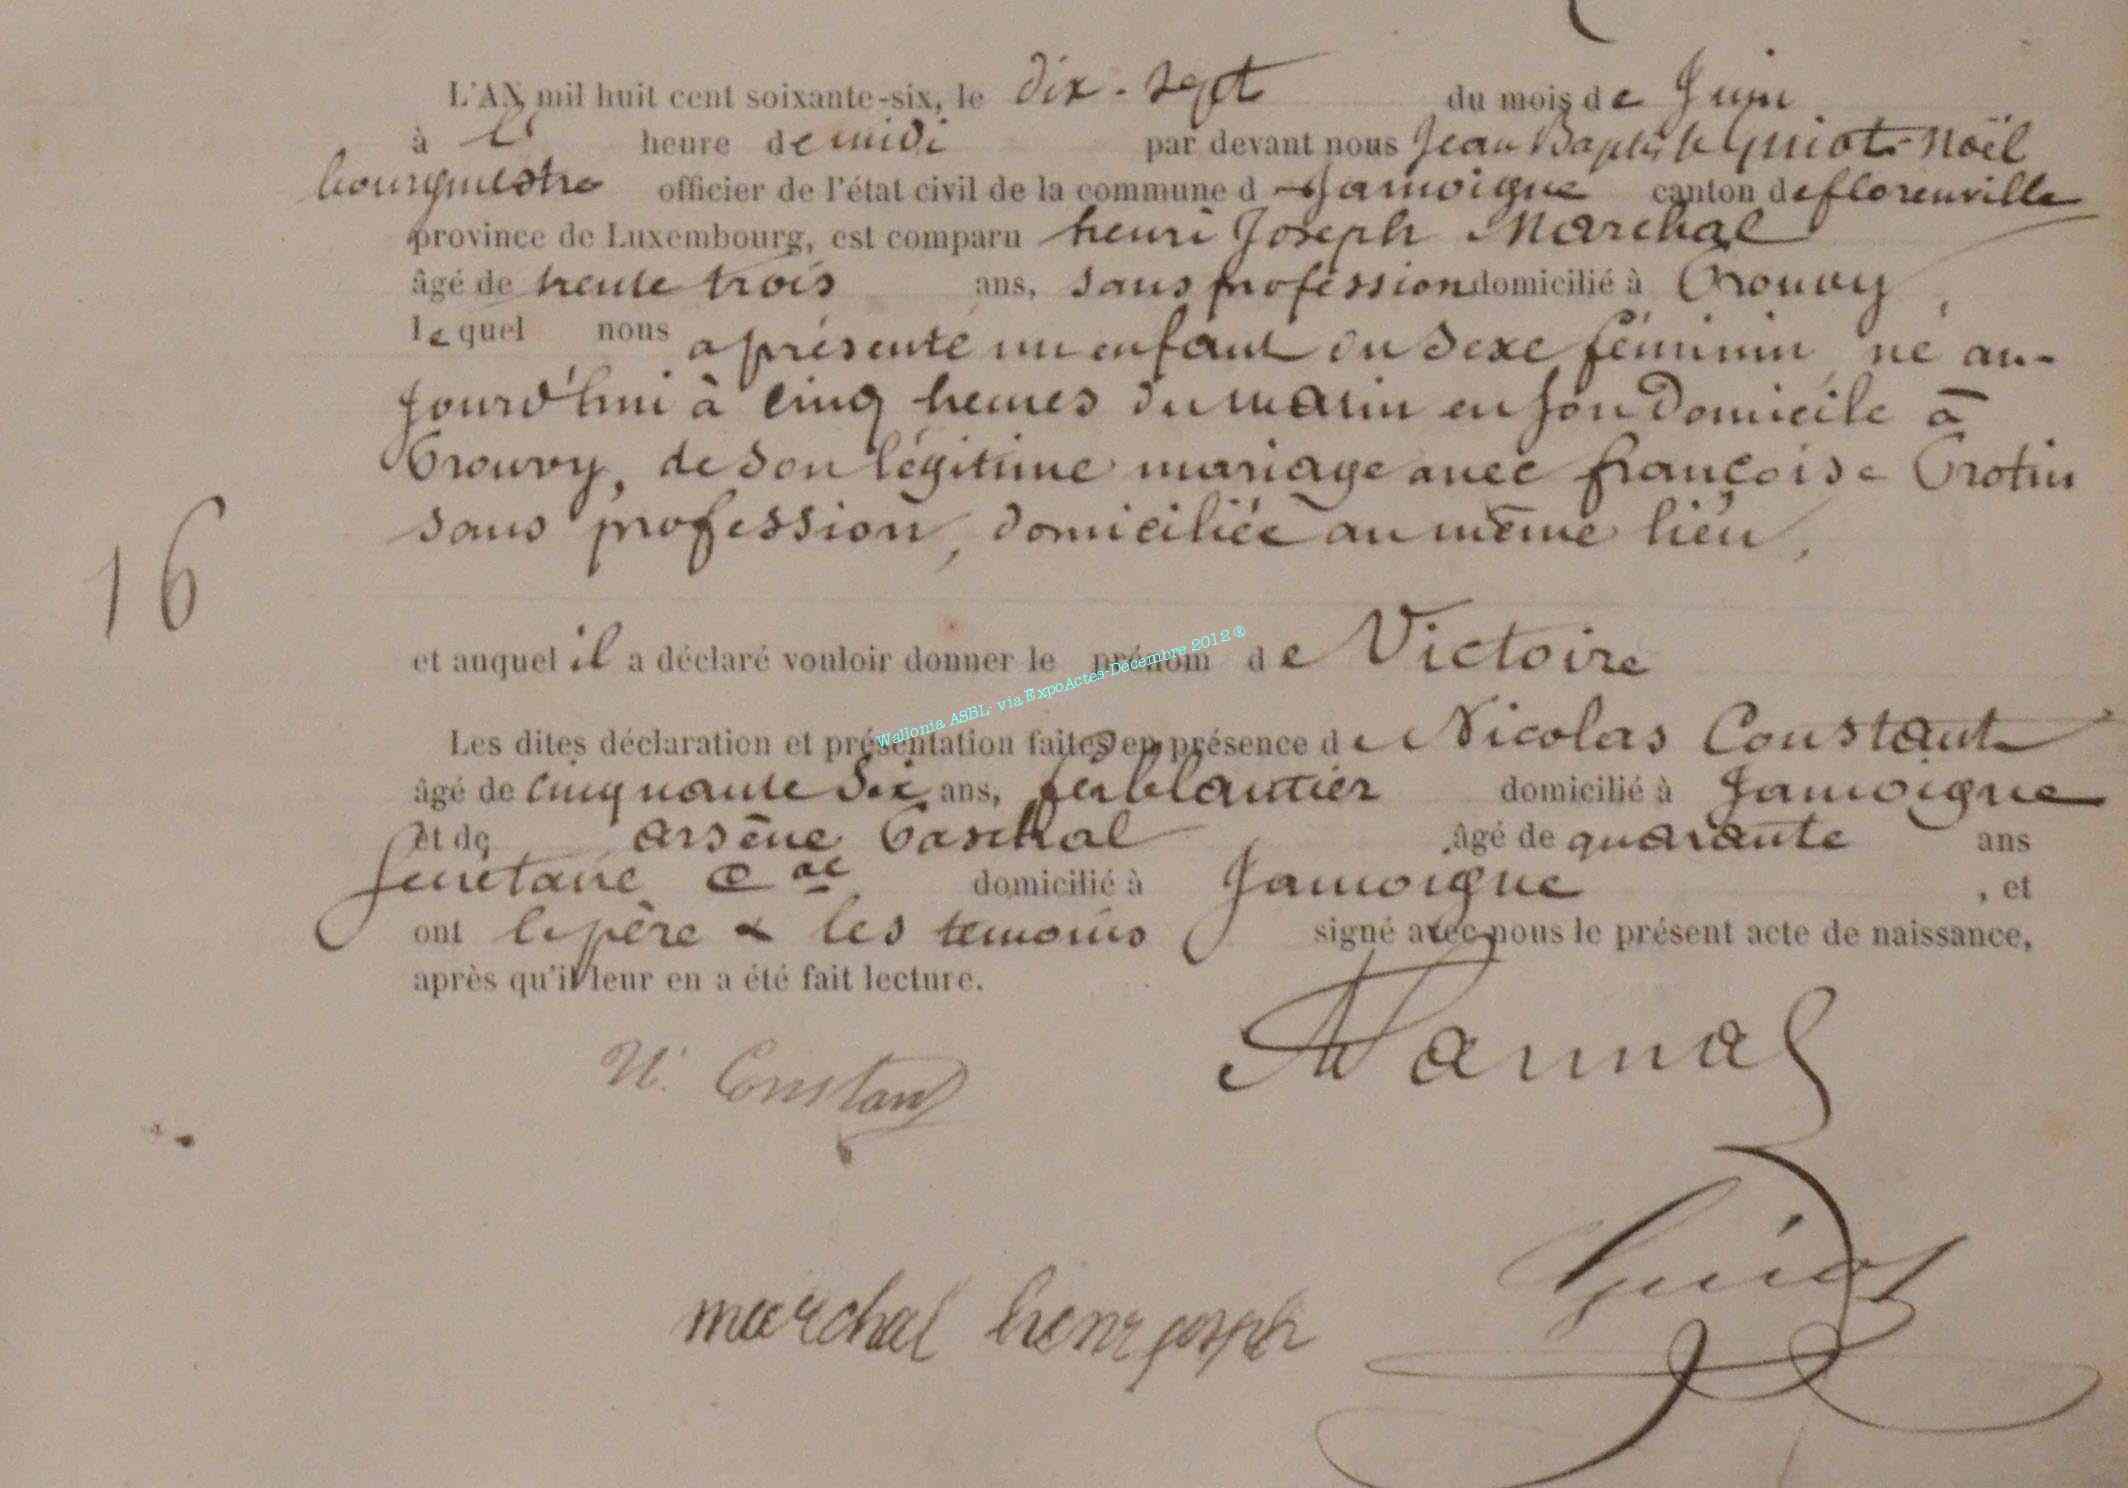 L'AN mil huit cent soixante-six, le dix-sept du mois de Juin
à l' heure de midi par devant nous Jean Baptiste Guiot-Noël
bourgmestre officier de l'état civil de la commune d Jamoigne canton de florenville
province de Luxembourg, est comparu henri Joseph Marchal
âgé de trente trois ans, sans profession domicilié à Prouvy,
lequel nous a présenté un enfant du sexe féminin, né au-
jourd'hui à cinq heures du matin en son domicile à
Prouvy, de son légitime mariage avec françoise Protin
sans profession, domiciliée au même lieu,
16
et auquel il a déclaré vouloir donner le prénom de Victoire
Wallonia ASBL- via ExpoActes-Décembre 2012 ®
Les dites déclaration et présentation faites en présence de Nicolas Constant
âgé de cinquante six ans, ferblantier domicilié à Jamoigne
et de arsène Paschal âgé de quarante ans
secrétaire cal domicilié à Jamoigne, et
ont le père & les temoins signé avec nous le présent acte de naissance,
après qu'il leur en a été fait lecture.
N. Constant
marchal henri joseph
Guiot